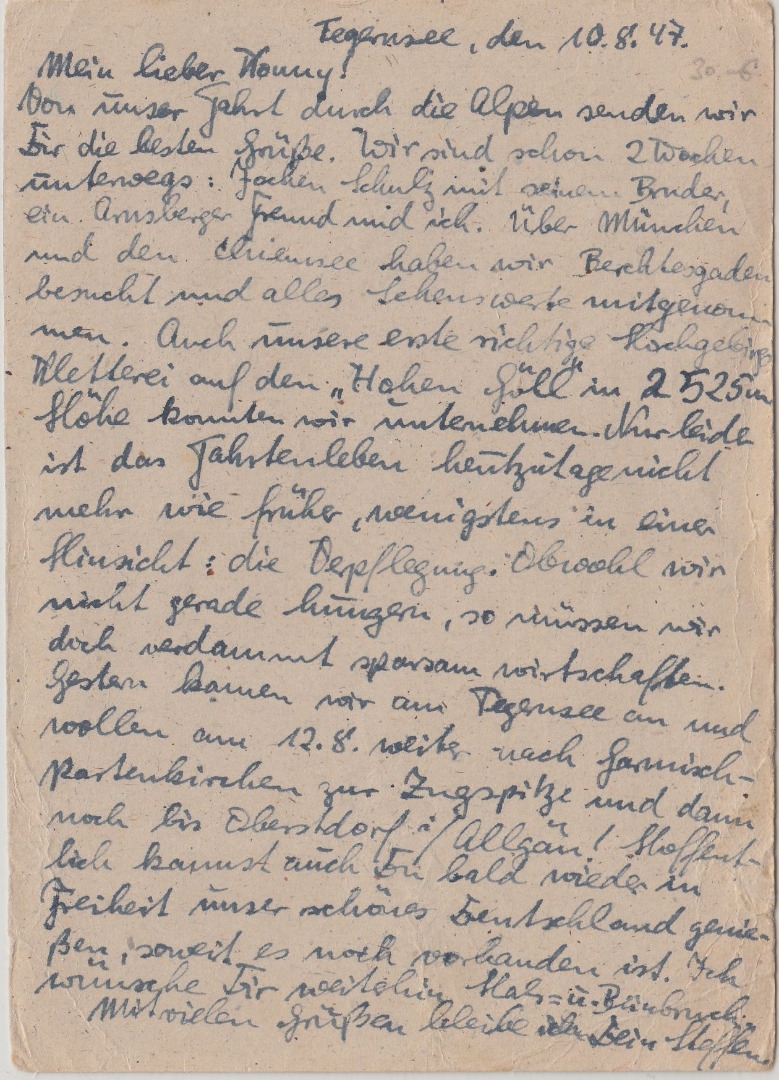 Tegernsee, den 10.8.47.
30 -6
Mein lieber Konny!
Von unser Fahrt durch die Alpen senden wir
Dir die besten Grüße. Wir sind schon 2 Wochen
unterwegs: Jochen Schulz mit seinem Bruder,
ein Arnsberger Freund und ich. Über München
und den Chiemsee haben wir Berchtesgaden
besucht und alles Sehenswerte mitgenom-
men. Auch unsere erste richtige Hochgebirgs
Kletterei auf den „Hohen Göll" in 2525 m
Höhe konnten wir unternehmen. Nur leider
ist das Fahrtenleben heutzutage nicht
mehr wie früher, wenigstens in einer
Hinsicht: die Verpflegung. Obwohl wir
nicht gerade hungern, so müssen wir
doch verdammt sparsam wirtschaften.
Gestern kamen wir am Tegernsee an und
wollen am 12.8. weiter nach Garmisch-
Partenkirchen zur Zugspitze und dann
noch bis Oberstdorf i/Allgäu! Hoffent-
lich kannst auch Du bald wieder in
Freiheit unser schönes Deutschland genie-
ßen, soweit es noch vorhanden ist. Ich
wünsche Dir weiterhin Hals= u. Beinbruch.
Mit vielen Grüßen bleibe ich Dein Steffen.